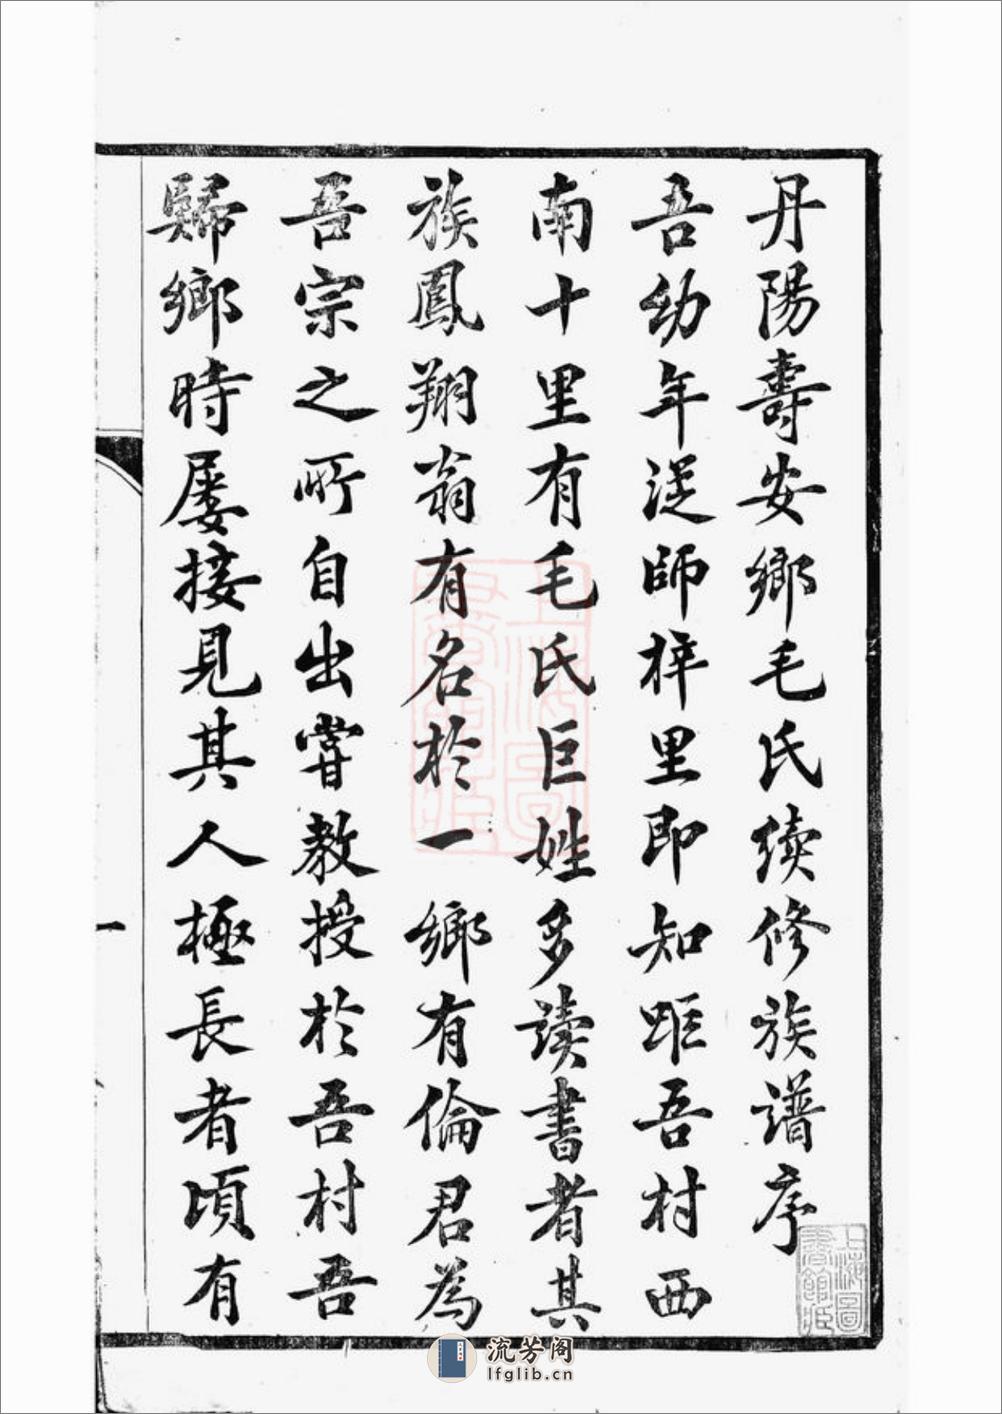 丹陽壽安鄉毛氏續修族譜序
吾幼年從師梓里即知距吾村西
南十里有毛氏巨姓多讀書者其
族鳳翔翁有名於一鄉有倫君為
吾宗之所自出嘗教授於吾村吾
歸鄉時屢接見其人極長者頃有
一
上海圖書館藏
上海圖書館藏
流芳阁
lfglib.cn